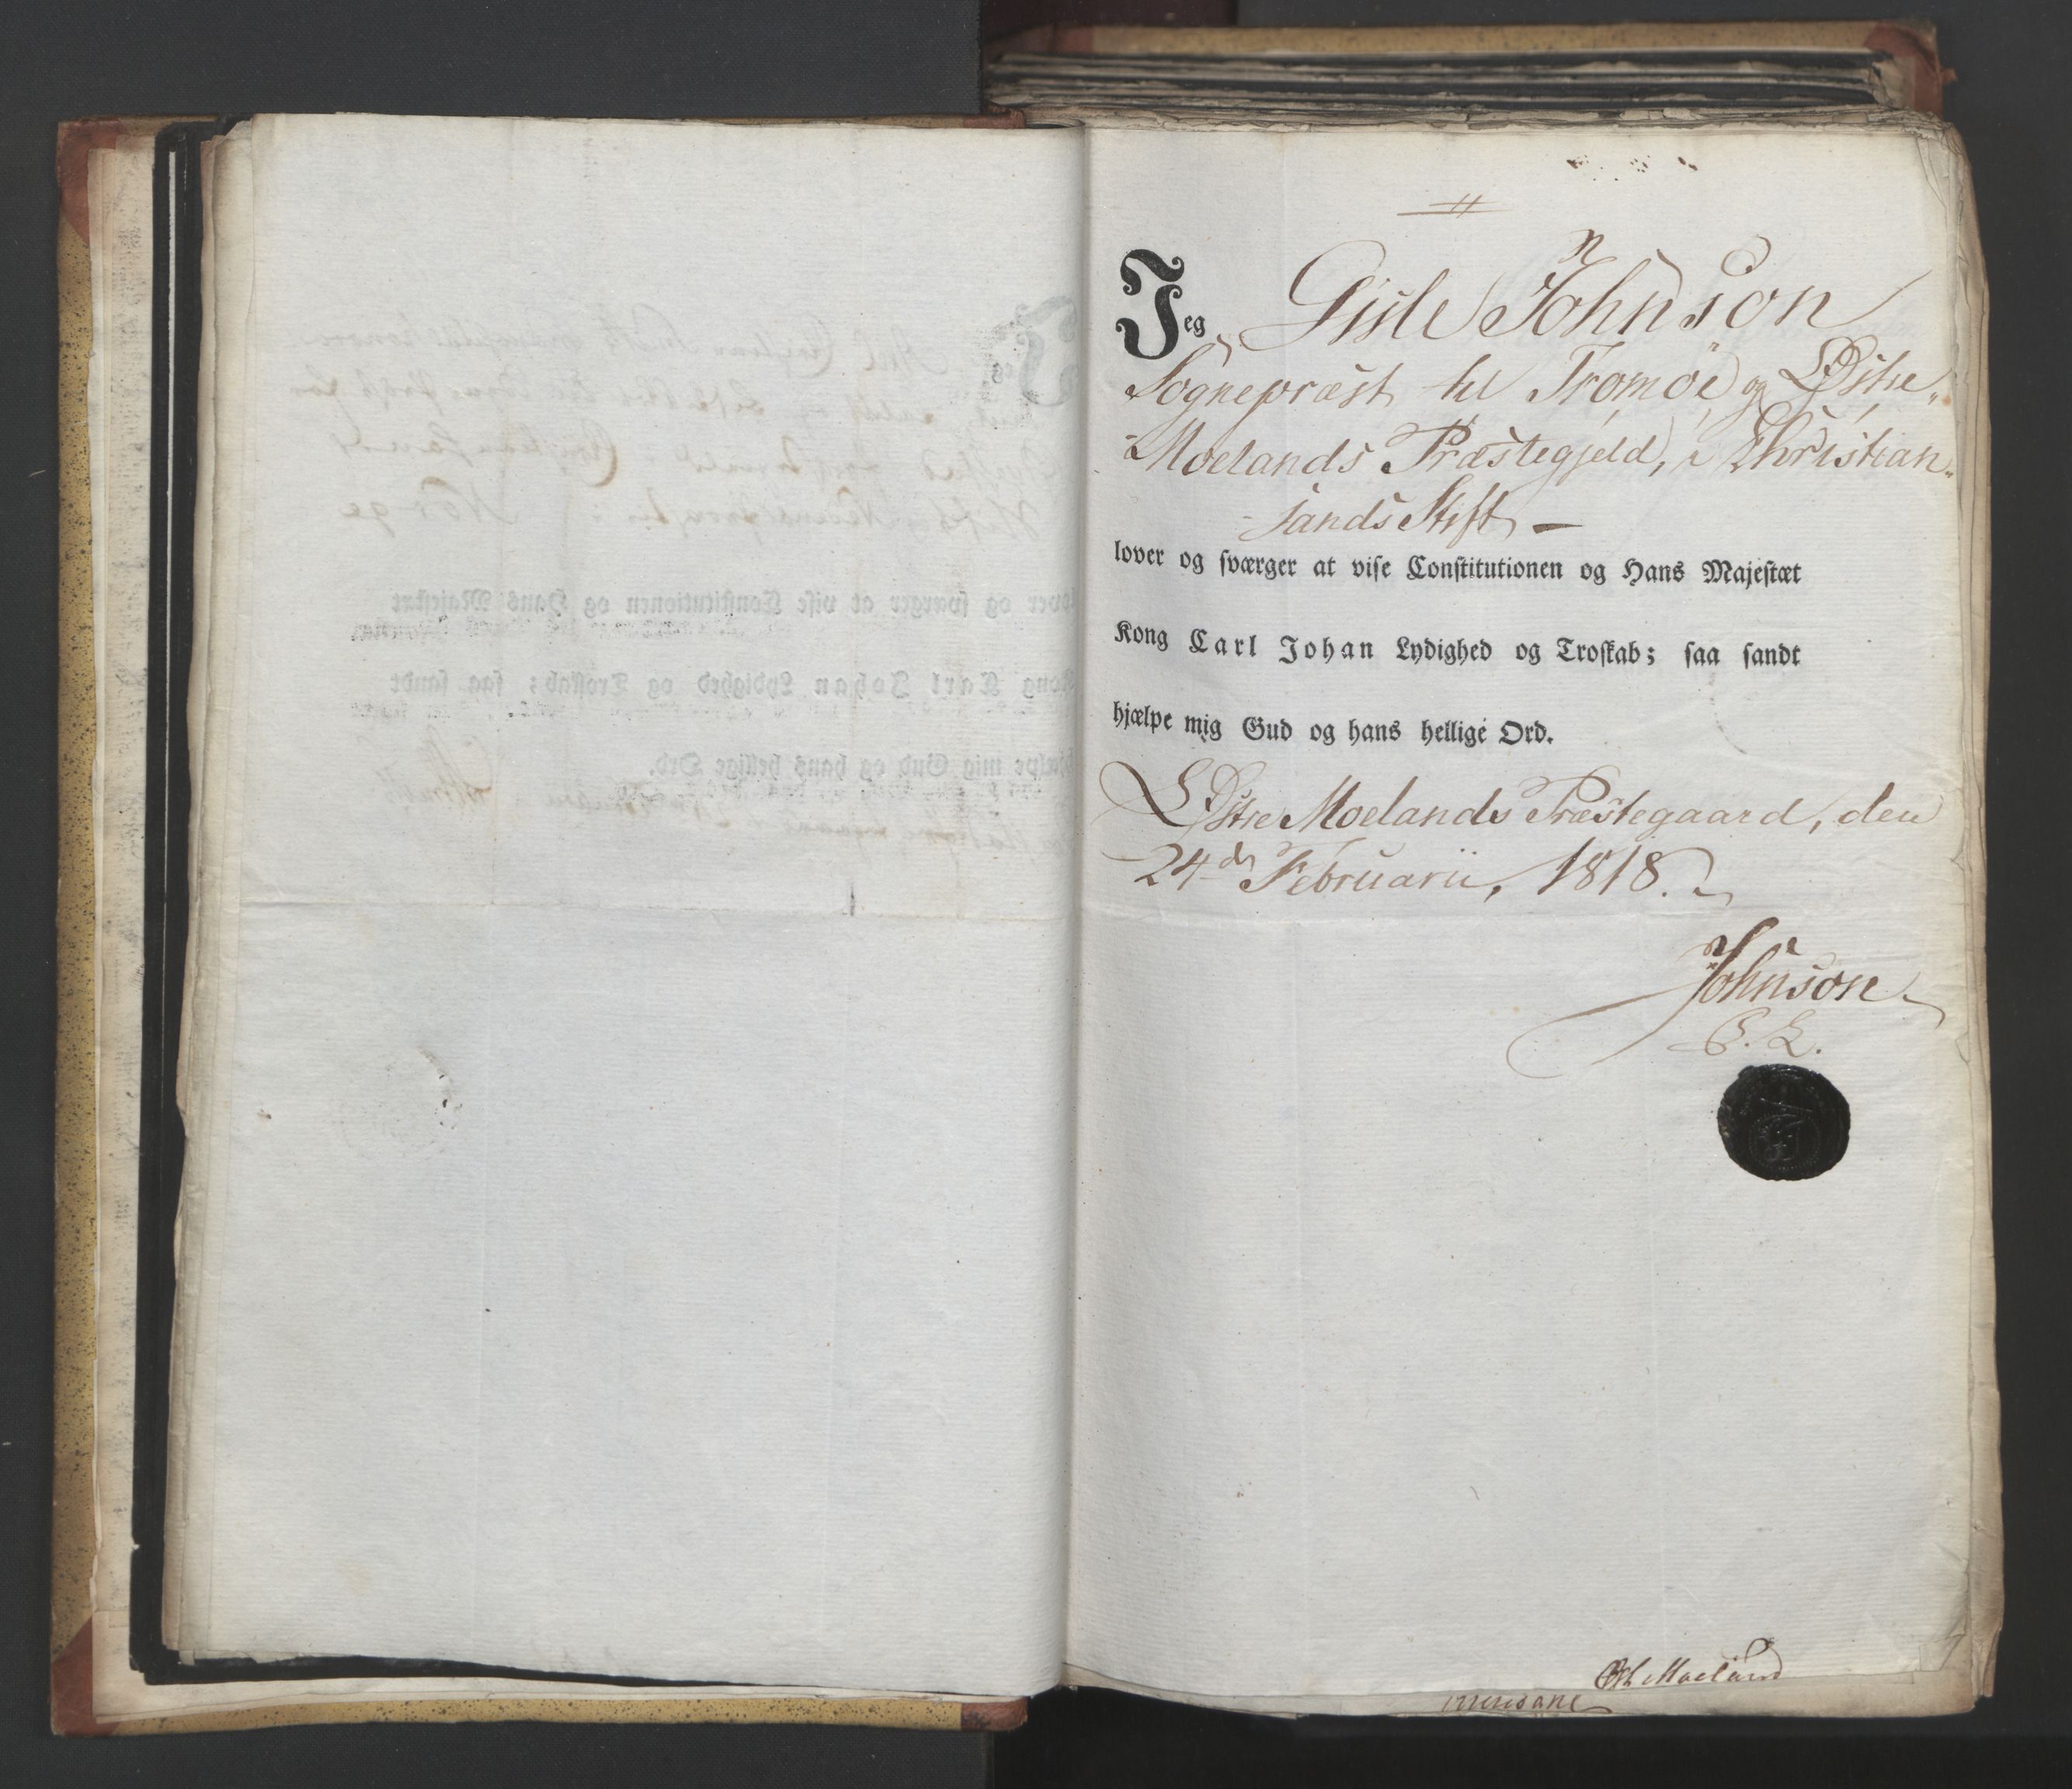 Jeg Gisle Johnson
Sognepræst til Tromöe og Østre-
Moelands Præstegjeld, i Christian-
sands Stift –
lover og sværger at vise Constitutionen og Hans Majestæt
Kong Carl Johan Lydighed og Troskab; saa sandt
hjælpe mig Gud og hans hellige Ord.
Østre Moelands Præstegaard, den
24de Februarii, 1818.
Johnson
Moeland